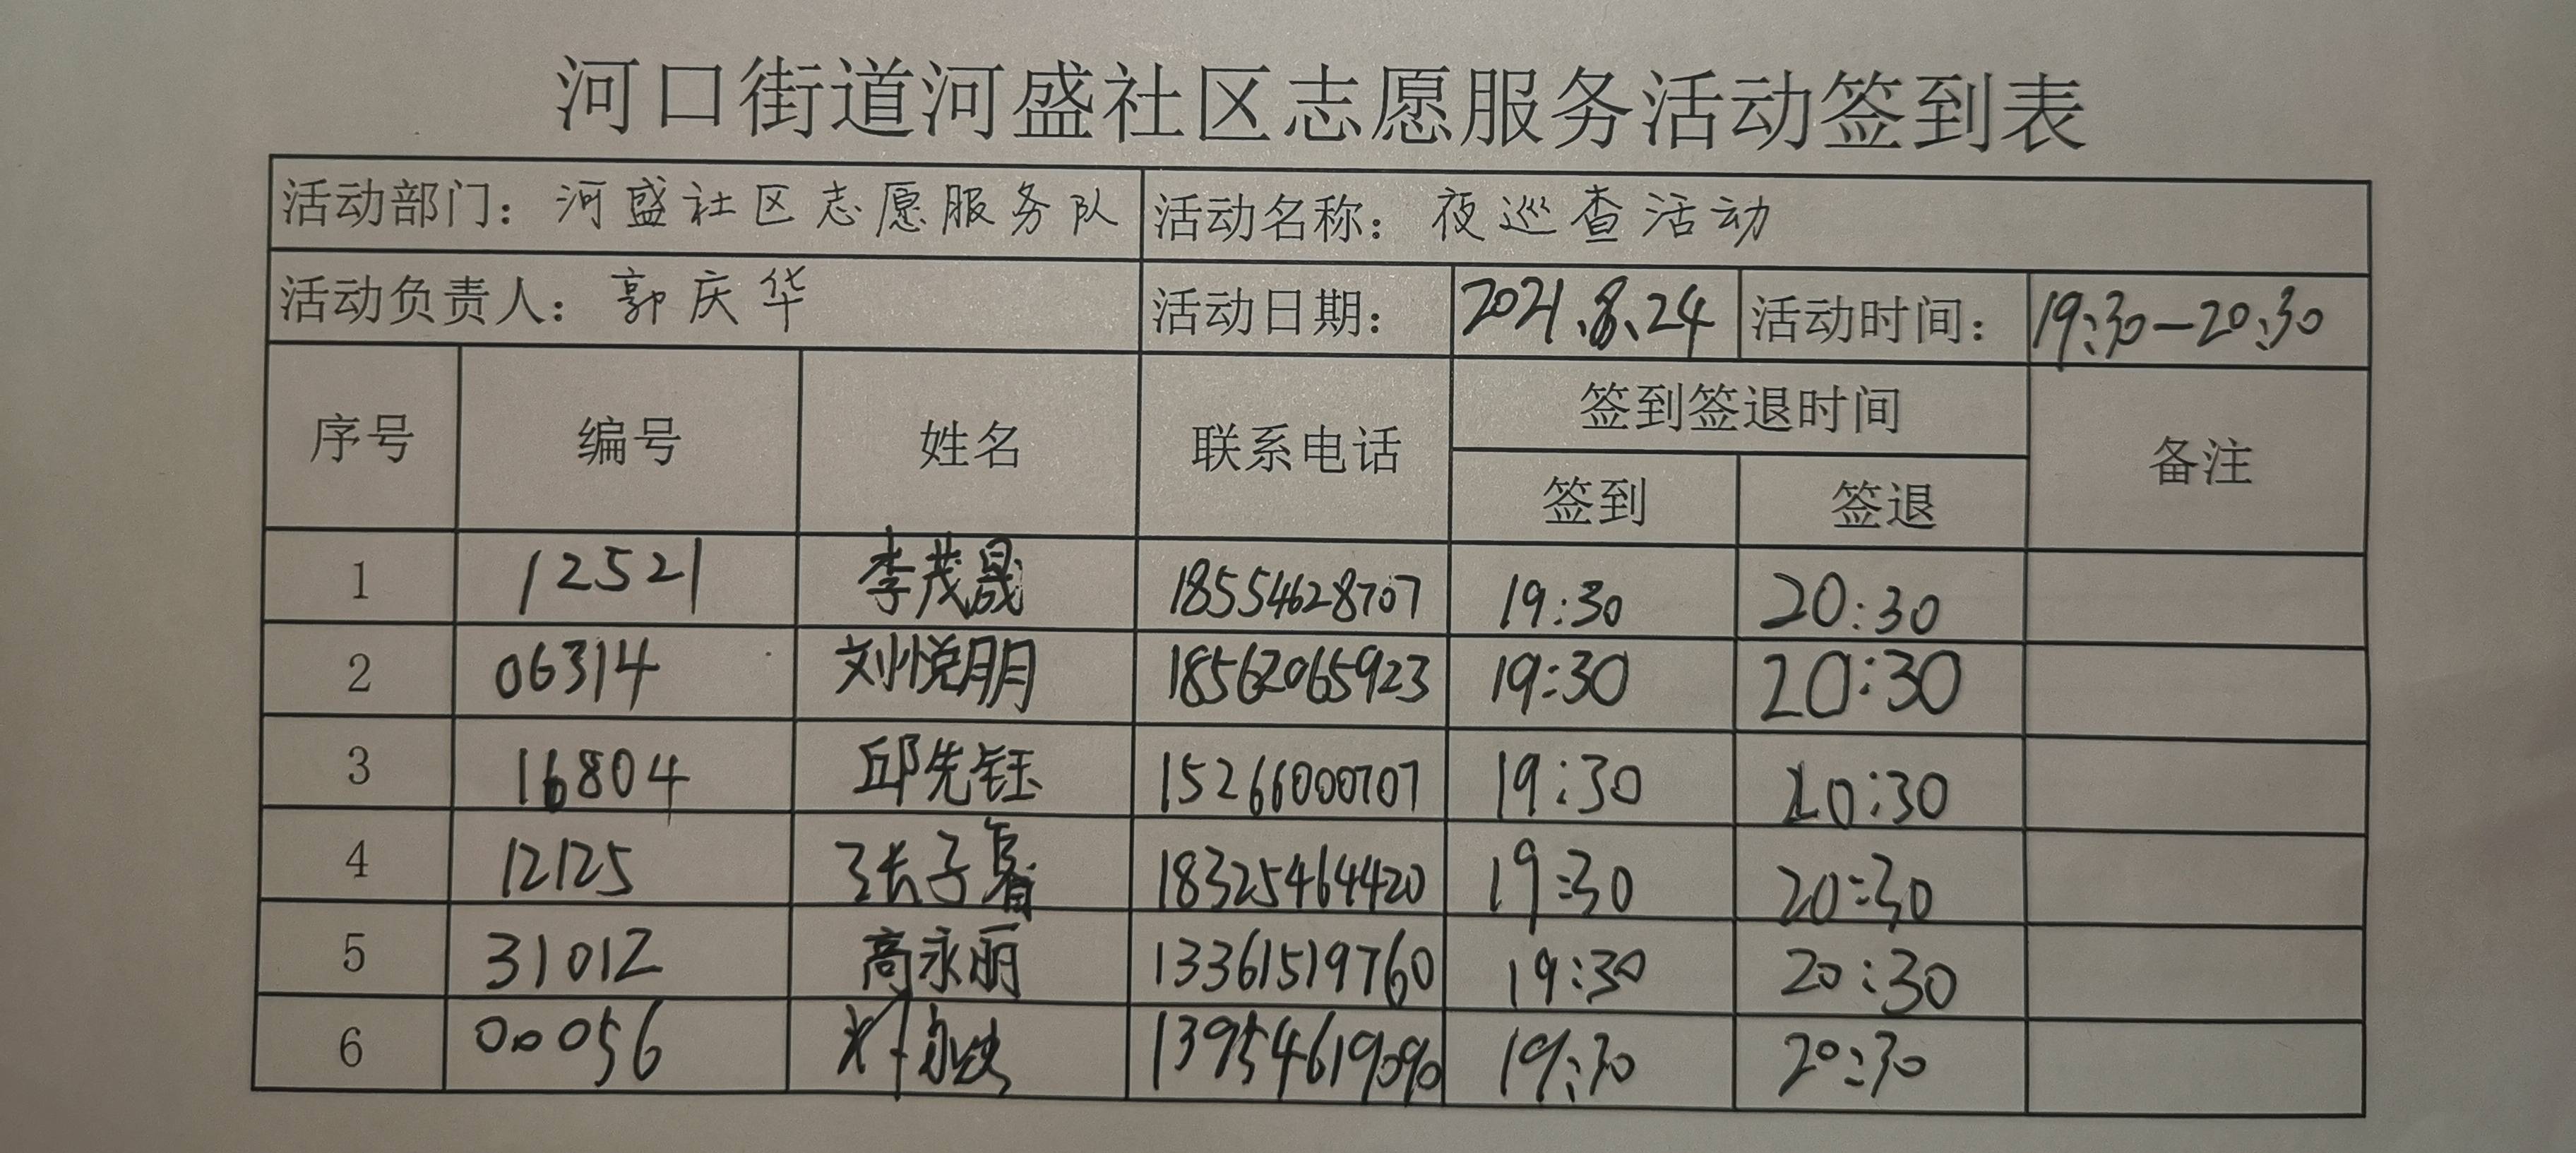 河口街道河盛社区志愿服务活动签到表
活动部门：河盛社区志愿服务队 活动名称：夜巡查活动
活动负责人：郭庆华 活动日期： 2021.8.24 活动时间： 19:30—20:30
序号 编号 姓名 联系电话 签到签退时间 备注
签到 签退
1 12521 李茂晟 18554628707 19:30 20:30
2 06314 刘悦朋 18562065923 19:30 20:30
3 16804 邱先钰 15266000707 19:30 20:30
4 12125 张子睿 18325464420 19:30 20:30
5 31012 高永丽 13361519760 19:30 20:30
6 00056 13954619090 19:30 20:30